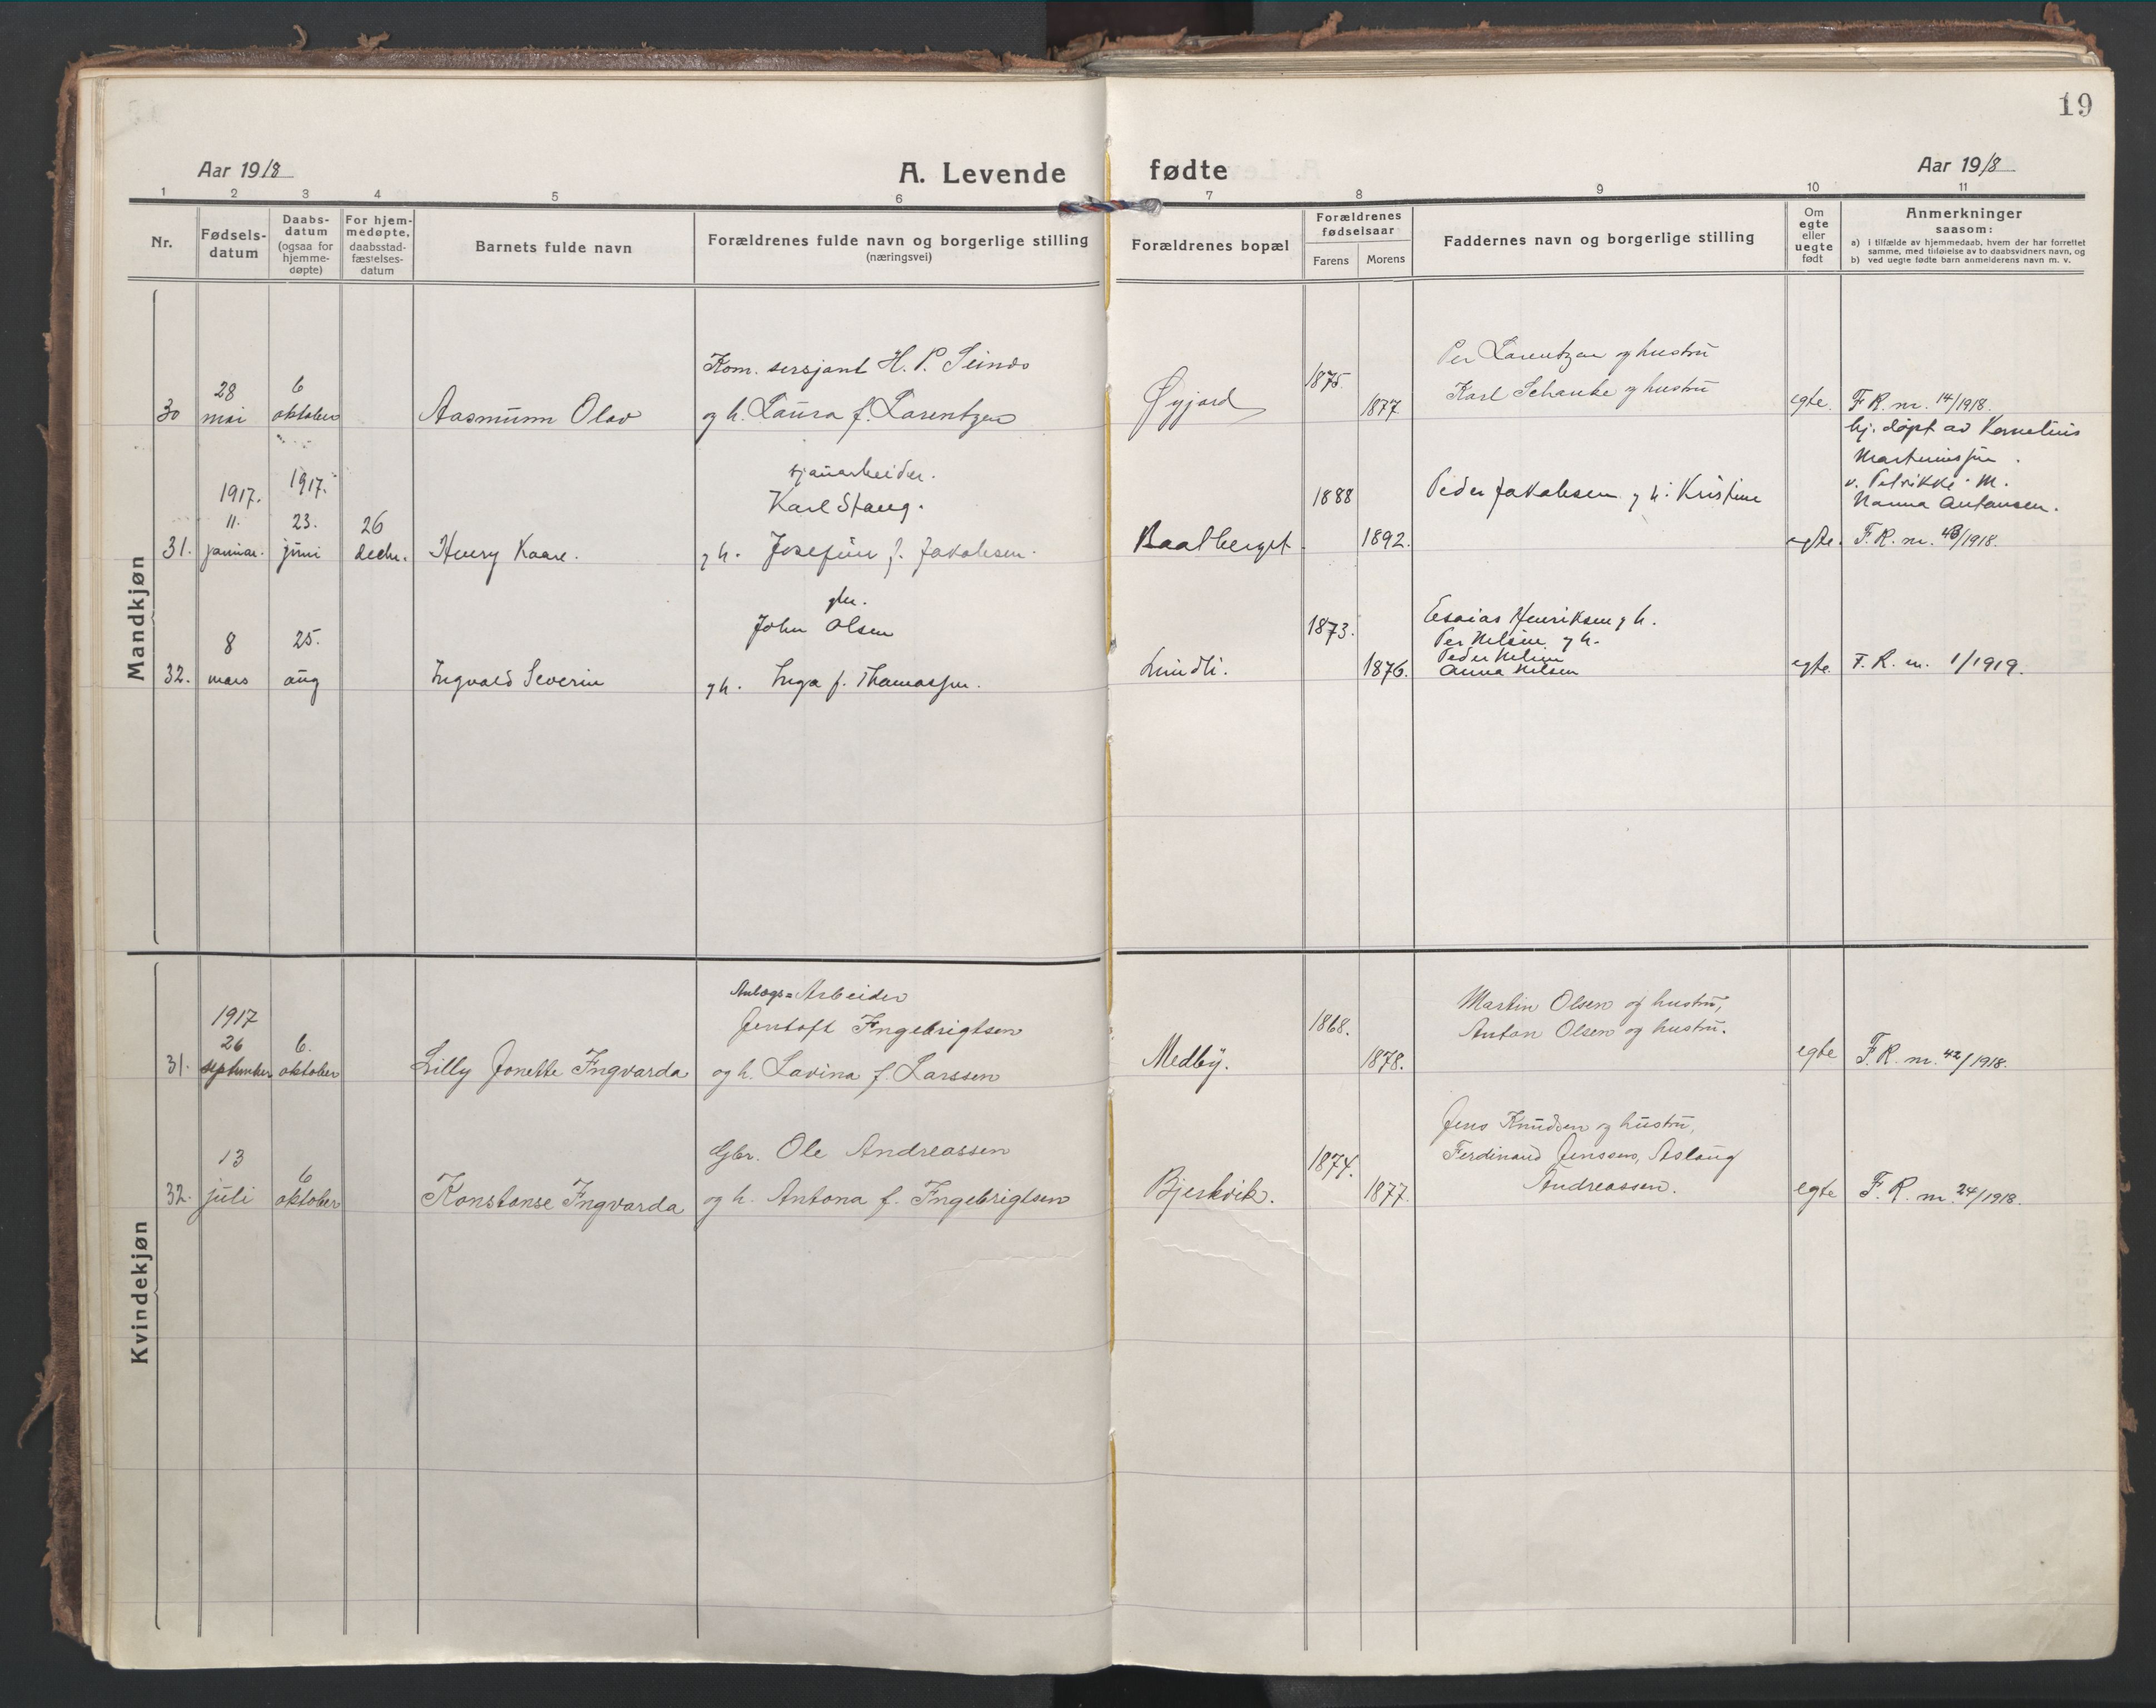 19
Aar 1918
A. Levende fødte
Aar 1918
1 2 3 4 5 6 7 8 9 10 11
Nr.
Fødsels-
datum
Daabs-
datum
(ogsaa for
hjemme-
døpte)
For hjem-
medøpte,
daabsstad-
fæstelses-
datum
Barnets fulde navn
Forældrenes fulde navn og borgerlige stilling
(næringsvei)
Forældrenes bopæl
Forældrenes
fødselsaar
Farens Morens
Faddernes navn og borgerlige stilling
Om
egte
eller
uegte
født
Anmerkninger
saasom:
a) i tilfælde av hjemmedaab, hvem der har forrettet
samme, med tilføielse av to daabsvidners navn, og
b) ved uegte fødte barn anmelderens navn m. v.
Mandkjøn
Kom. sersjant H. P. Seines
Per Larentzen og hustru
28 6
1875.
Karl Schanke og hustru
30 mai oktober Aasmunn Olav og h. Laura f. Larentzen Øyjord 1877 egte. F. R. nr. 14/1918.
hj. døpt av Kornelius
Martinussen.
v. Petrikke M.
Nanna Antonsen.
sjauarbeider.
1917. 1917.
Karl Stang.
1888
Peder Jakobsen g h. Kristine
11. 23. 26
31. januar. juni decbr. Henry Kaare. g h. Josefine f. Jakobsen. Baatberget 1892. egte. F. R. nr. 43/1918.
gbr.
John Olsen
1873.
Esaias Henriksen g h.
Per Nilsen g h.
Peder Nilsen
Anna Nilsen
8 25.
32. mars aug Ingvald Severin g h. Inga f. Thomassen. Lundli. 1876. egte. F. R. nr. 1/1919.
Kvindekjøn
Anlægs-Arbeider
1917
Jentoft Ingebrigtsen
1868.
Martin Olsen og hustru,
Anton Olsen og hustru.
26 6.
31. september oktober Lilly Jonette Ingvarda og h. Lavina f. Larssen Medby. 1878. egte F. R. nr. 42/1918.
Gbr. Ole Andreassen
1874.
Jens Knudsen og hustru,
Ferdinand Jenssen, Aslaug
Andreassen.
13 6
32. juli oktober Konstanse Ingvarda og h. Antona f. Ingebrigtsen Bjerkvik. 1877. egte F. R. nr. 24/1918.